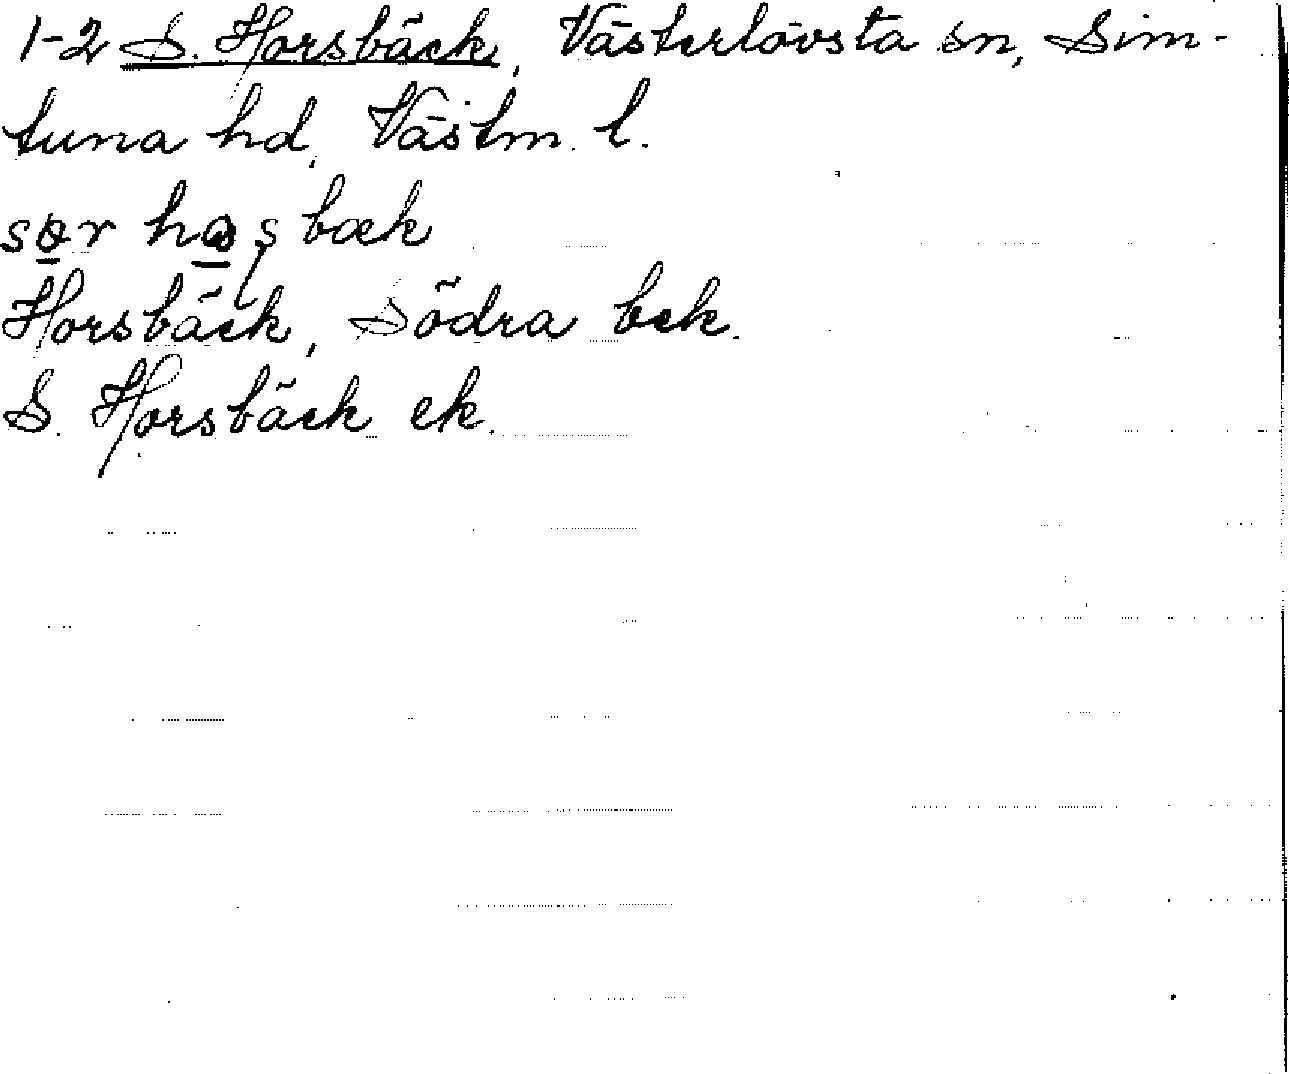 1-2 S. Horsbäck, Västerlövsta sn, Sim-
tuna hd, Västm. l.
sør haʂbæk
Horsbäck, Södra bek.
S. Horsbäck ek.